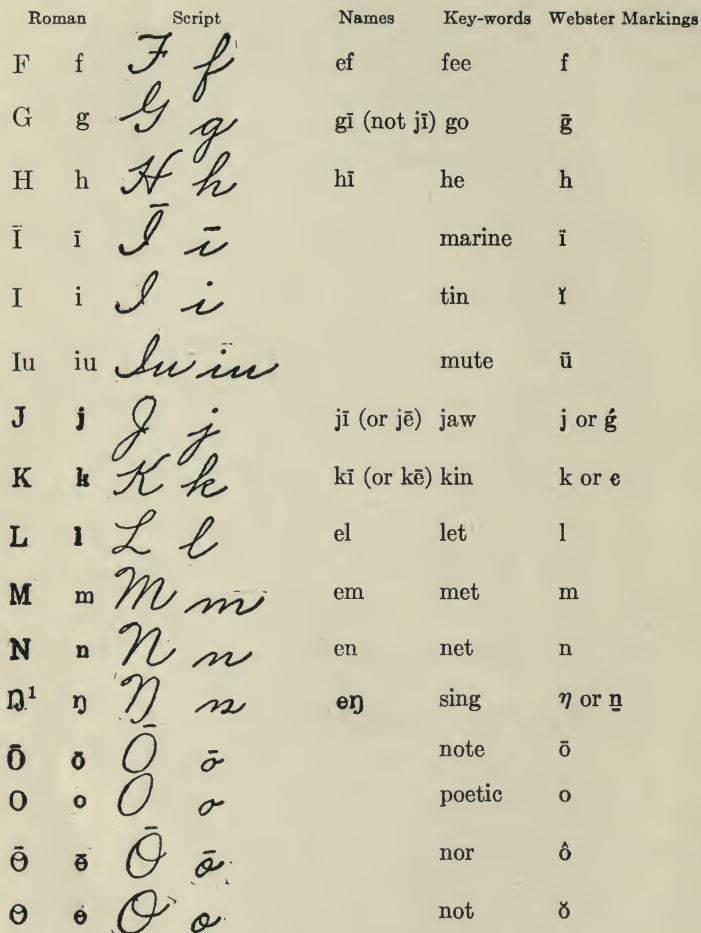 Roman Script Names Key-words Webster Markings
F f F f ef fee f
G g G g gī (not jī) go ḡ
H h H h hī he h
Ī ī Ī ī marine ï
I i I i tin ĭ
Iu iu Iu iu mute ū
J j J j jī (or jē) jaw j or ǵ
K k K k kī (or kē) kin k or ꞓ
L l L l el let l
M m M m em met m
N n N n en net n
Ŋ¹ ŋ Ŋ ŋ eŋ sing η or n̠
Ō ō Ō ō note ō
O o O o poetic o
Ɵ̄ ɵ̄ Ɵ̄ ɵ̄ nor ô
Ɵ ɵ Ɵ ɵ not ŏ